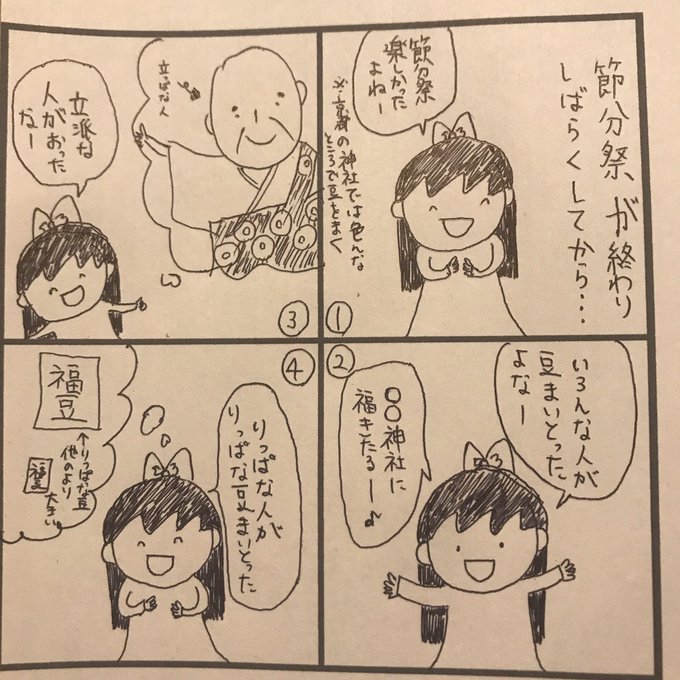 節分祭が終わり
しばらくしてから・・・
節分祭
楽しかった
よねー
※京都の神社では色んな
ところで豆をまく
①
②
いろんな人が
豆まいとった
よなー
○○神社に
福きたるー♪
③
立っぱな人
立派な
人がおった
なー
④
りっぱな人が
りっぱな豆まいとった
福豆
↑りっぱな豆
他のより
大きい
福豆